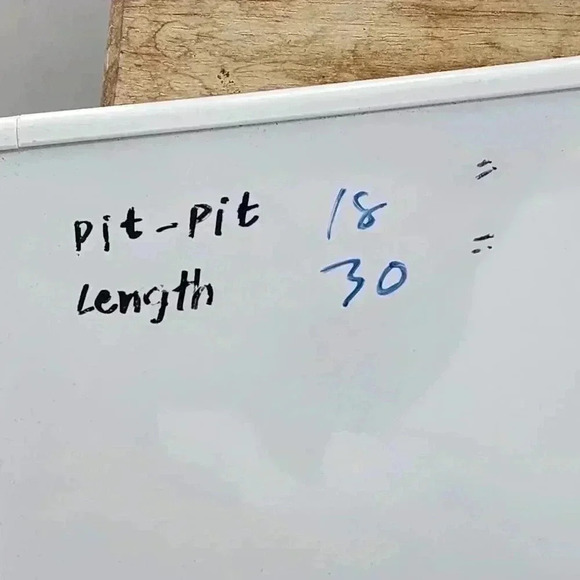 Pit-Pit 18 "
Length 30 "